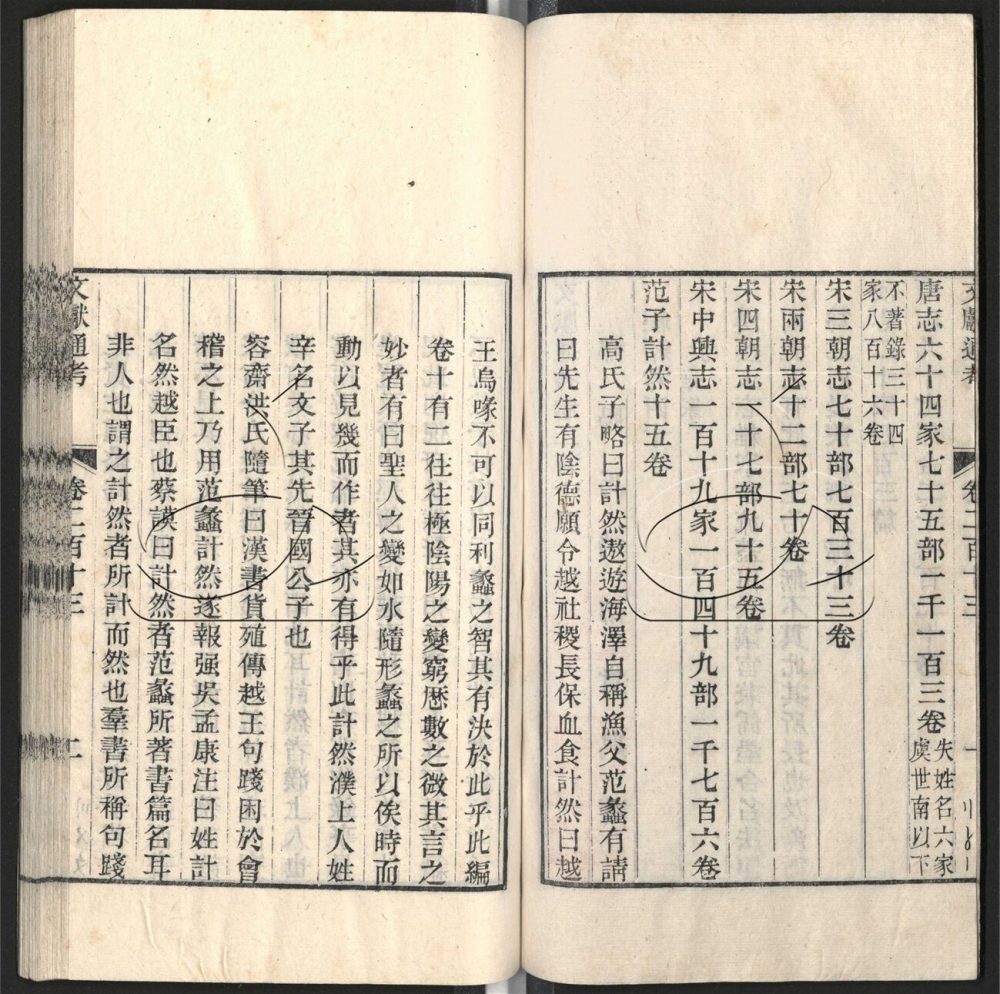 文獻通考 卷二百十三 一
唐志六十四家七十五部一千一百三卷失姓名六家虞世南以下
不著錄三十四家八百十六卷
宋三朝志七十部七百三十三卷
宋兩朝志十二部七十卷
宋四朝志一十七部九十五卷
宋中興志一百十九家一百四十九部一千七百六卷
范子計然十五卷
高氏子略曰計然遨遊海澤自稱漁父范蠡有請
曰先生有陰德願令越社稷長保血食計然曰越
王鳥喙不可以同利蠡之智其有決於此乎此編
卷十有二往往極陰陽之變窮歷數之微其言之
妙者有曰聖人之變如水隨形蠡之所以俟時而
動以見幾而作者其亦有得乎此計然濮上人姓
辛名文子其先晉國公子也
容齋洪氏隨筆曰漢書貨殖傳越王句踐困於會
稽之上乃用范蠡計然遂報强吳孟康注曰姓計
名然越臣也蔡謨曰計然者范蠡所著書篇名耳
非人也謂之計然者所計而然也羣書所稱句踐
文獻通考 卷二百十三 二